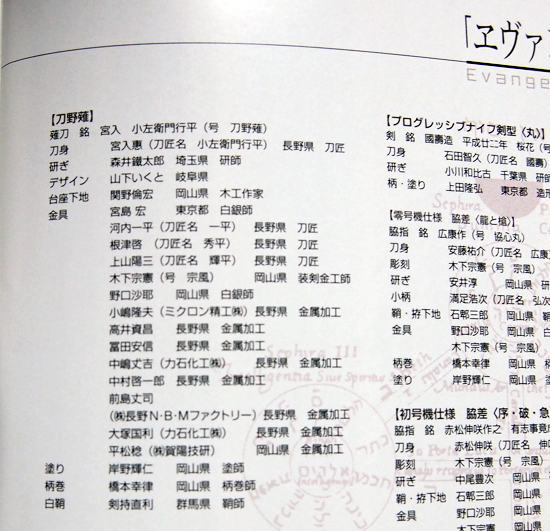 「ヱヴァ
Evange
【刀野薙】
薙刀 銘 宮入 小左衛門行平（号 刀野薙）
刀身 宮入恵（刀匠名 小左衛門行平） 長野県 刀匠
研ぎ 森井鐵太郎 埼玉県 研師
デザイン 山下いくと 岐阜県
台座下地 関野倫宏 岡山県 木工作家
金具 宮島 宏 東京都 白銀師
河内一平（刀匠名 一平） 長野県 刀匠
根津啓（刀匠名 秀平） 長野県 刀匠
上山陽三（刀匠名 輝平） 長野県 刀匠
木下宗憲（号 宗風） 岡山県 装剣金工師
野口沙耶 岡山県 白銀師
小嶋隆夫（ミクロン精工㈱）長野県 金属加工
高井資昌 長野県 金属加工
冨田安信 長野県 金属加工
中嶋丈吉（力石化工㈱） 長野県 金属加工
中村啓一郎 長野県 金属加工
前島丈司
（㈱長野N・B・Mファクトリー）長野県 金属加工
大塚国利（力石化工㈱） 長野県 金属加工
平松稔（㈱賀陽技研） 岡山県 金属加工
塗り 岸野輝仁 岡山県 塗師
柄巻 橋本幸律 岡山県 柄巻師
白鞘 剣持直利 群馬県 鞘師
【プログレッシブナイフ剣型（丸）】
剣 銘 國壽造 平成廿二年 桜花（号
刀身 石田智久（刀匠名 國壽）
研ぎ 小川和比古 千葉県 研師
柄・塗り 上田隆弘 東京都 造形
【零号機仕様 脇差〈龍と槍〉】
脇指 銘 広康作（号 協心丸）
刀身 安藤祐介（刀匠名 広康）
彫刻 木下宗憲（号 宗風）
研ぎ 安井淳 岡山県 研
小柄 満足浩次（刀匠名 弘次
鞘・拵下地 石郸三郎 岡山県 鞘
金具 野口沙耶 岡山県 白
木下宗憲（号 宗風）
柄巻 橋本幸律 岡山県
塗り 岸野輝仁 岡山県 塗
【初号機仕様 脇差（序・破・急
脇指 銘 赤松伸咲作之 有志事竟成
刀身 赤松伸咲（刀匠名 伸
彫刻 木下宗憲（号 宗風）
研ぎ 中尾慶次 岡山県
鞘・拵下地 石郸三郎 岡山県
金具 野口沙耶 岡山県
木下宗憲